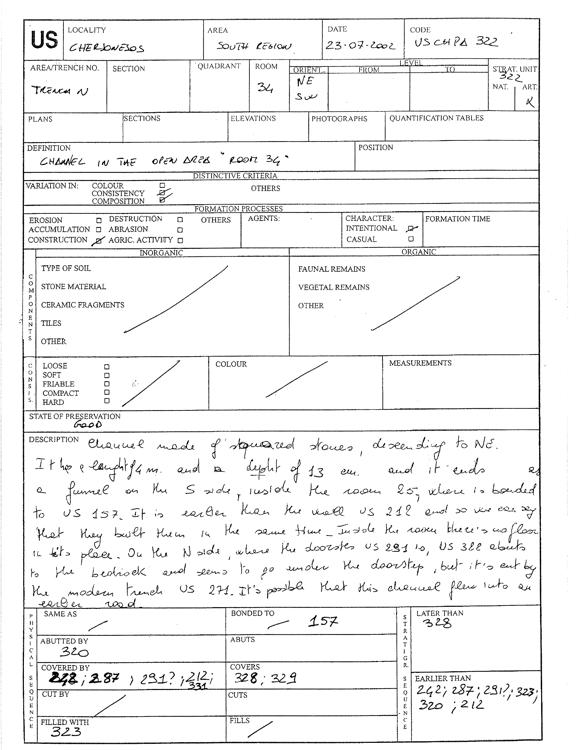 US
LOCALITY
CHERSONESOS
AREA
SOUTH REGION
DATE
23-07-2002
CODE
US CHPA 322
AREA/TRENCH NO.
TRENCH N
SECTION
QUADRANT
ROOM
34
LEVEL
ORIENT. FROM TO
NE
SW
STRAT. UNIT
322
NAT. ART.
X
PLANS
SECTIONS
ELEVATIONS
PHOTOGRAPHS
QUANTIFICATION TABLES
DEFINITION
CHANNEL IN THE OPEN AREA "ROOM 34"
POSITION
DISTINCTIVE CRITERIA
VARIATION IN: COLOUR
CONSISTENCY
COMPOSITION
OTHERS
FORMATION PROCESSES
EROSION DESTRUCTION OTHERS
ACCUMULATION ABRASION
CONSTRUCTION AGRIC. ACTIVITY
AGENTS:
CHARACTER:
INTENTIONAL
CASUAL
FORMATION TIME
COMPONENTS
INORGANIC
TYPE OF SOIL
STONE MATERIAL
CERAMIC FRAGMENTS
TILES
OTHER
ORGANIC
FAUNAL REMAINS
VEGETAL REMAINS
OTHER
CONSIS.
LOOSE
SOFT
FRIABLE
COMPACT
HARD
COLOUR
MEASUREMENTS
STATE OF PRESERVATION
GOOD
DESCRIPTION Channel made of squared stones, descending to NE.
It has a lenght of 4 m. and a depht of 13 cm. and it ends as
a funnel on the S side, inside the room 25, where is bonded
to US 157. It is earlier than the wall US 212 and so we can say
that they built them in the same time_ Inside the room there's no floor
in its place. On the N side, where the doorstep US 291 is, US 322 abuts
to the bedrock and seems to go under the doorstep, but it's cut by
the modern trench US 271. It's possible that this channel flew into an
earlier road.
PHYSICAL SEQUENCE
SAME AS
BONDED TO 157
ABUTTED BY
320
ABUTS
COVERED BY
242; 287; 291?; 212;
331
COVERS
328; 329
CUT BY
CUTS
FILLED WITH
323
FILLS
STRATIGR. SEQUENCE
LATER THAN
328
EARLIER THAN
242; 287; 291?; 323;
320; 212